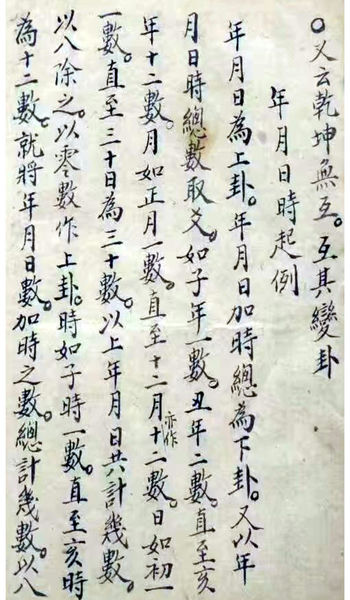 〇又云乾坤無互。互其變卦
年月日時起例
年月日為上卦。年月日加時總為下卦。又以年
月日時總數取爻。如子年一數。丑年二數。直至亥
年十二數。月如正月一數。直至十二月亦作十二數。日如初一
一數。直至三十日為三十數。以上年月日共計幾數。
以八除之。以零數作上卦。時如子時一數。直至亥時
為十二數。就將年月日數。加時之數。總計幾數。以八